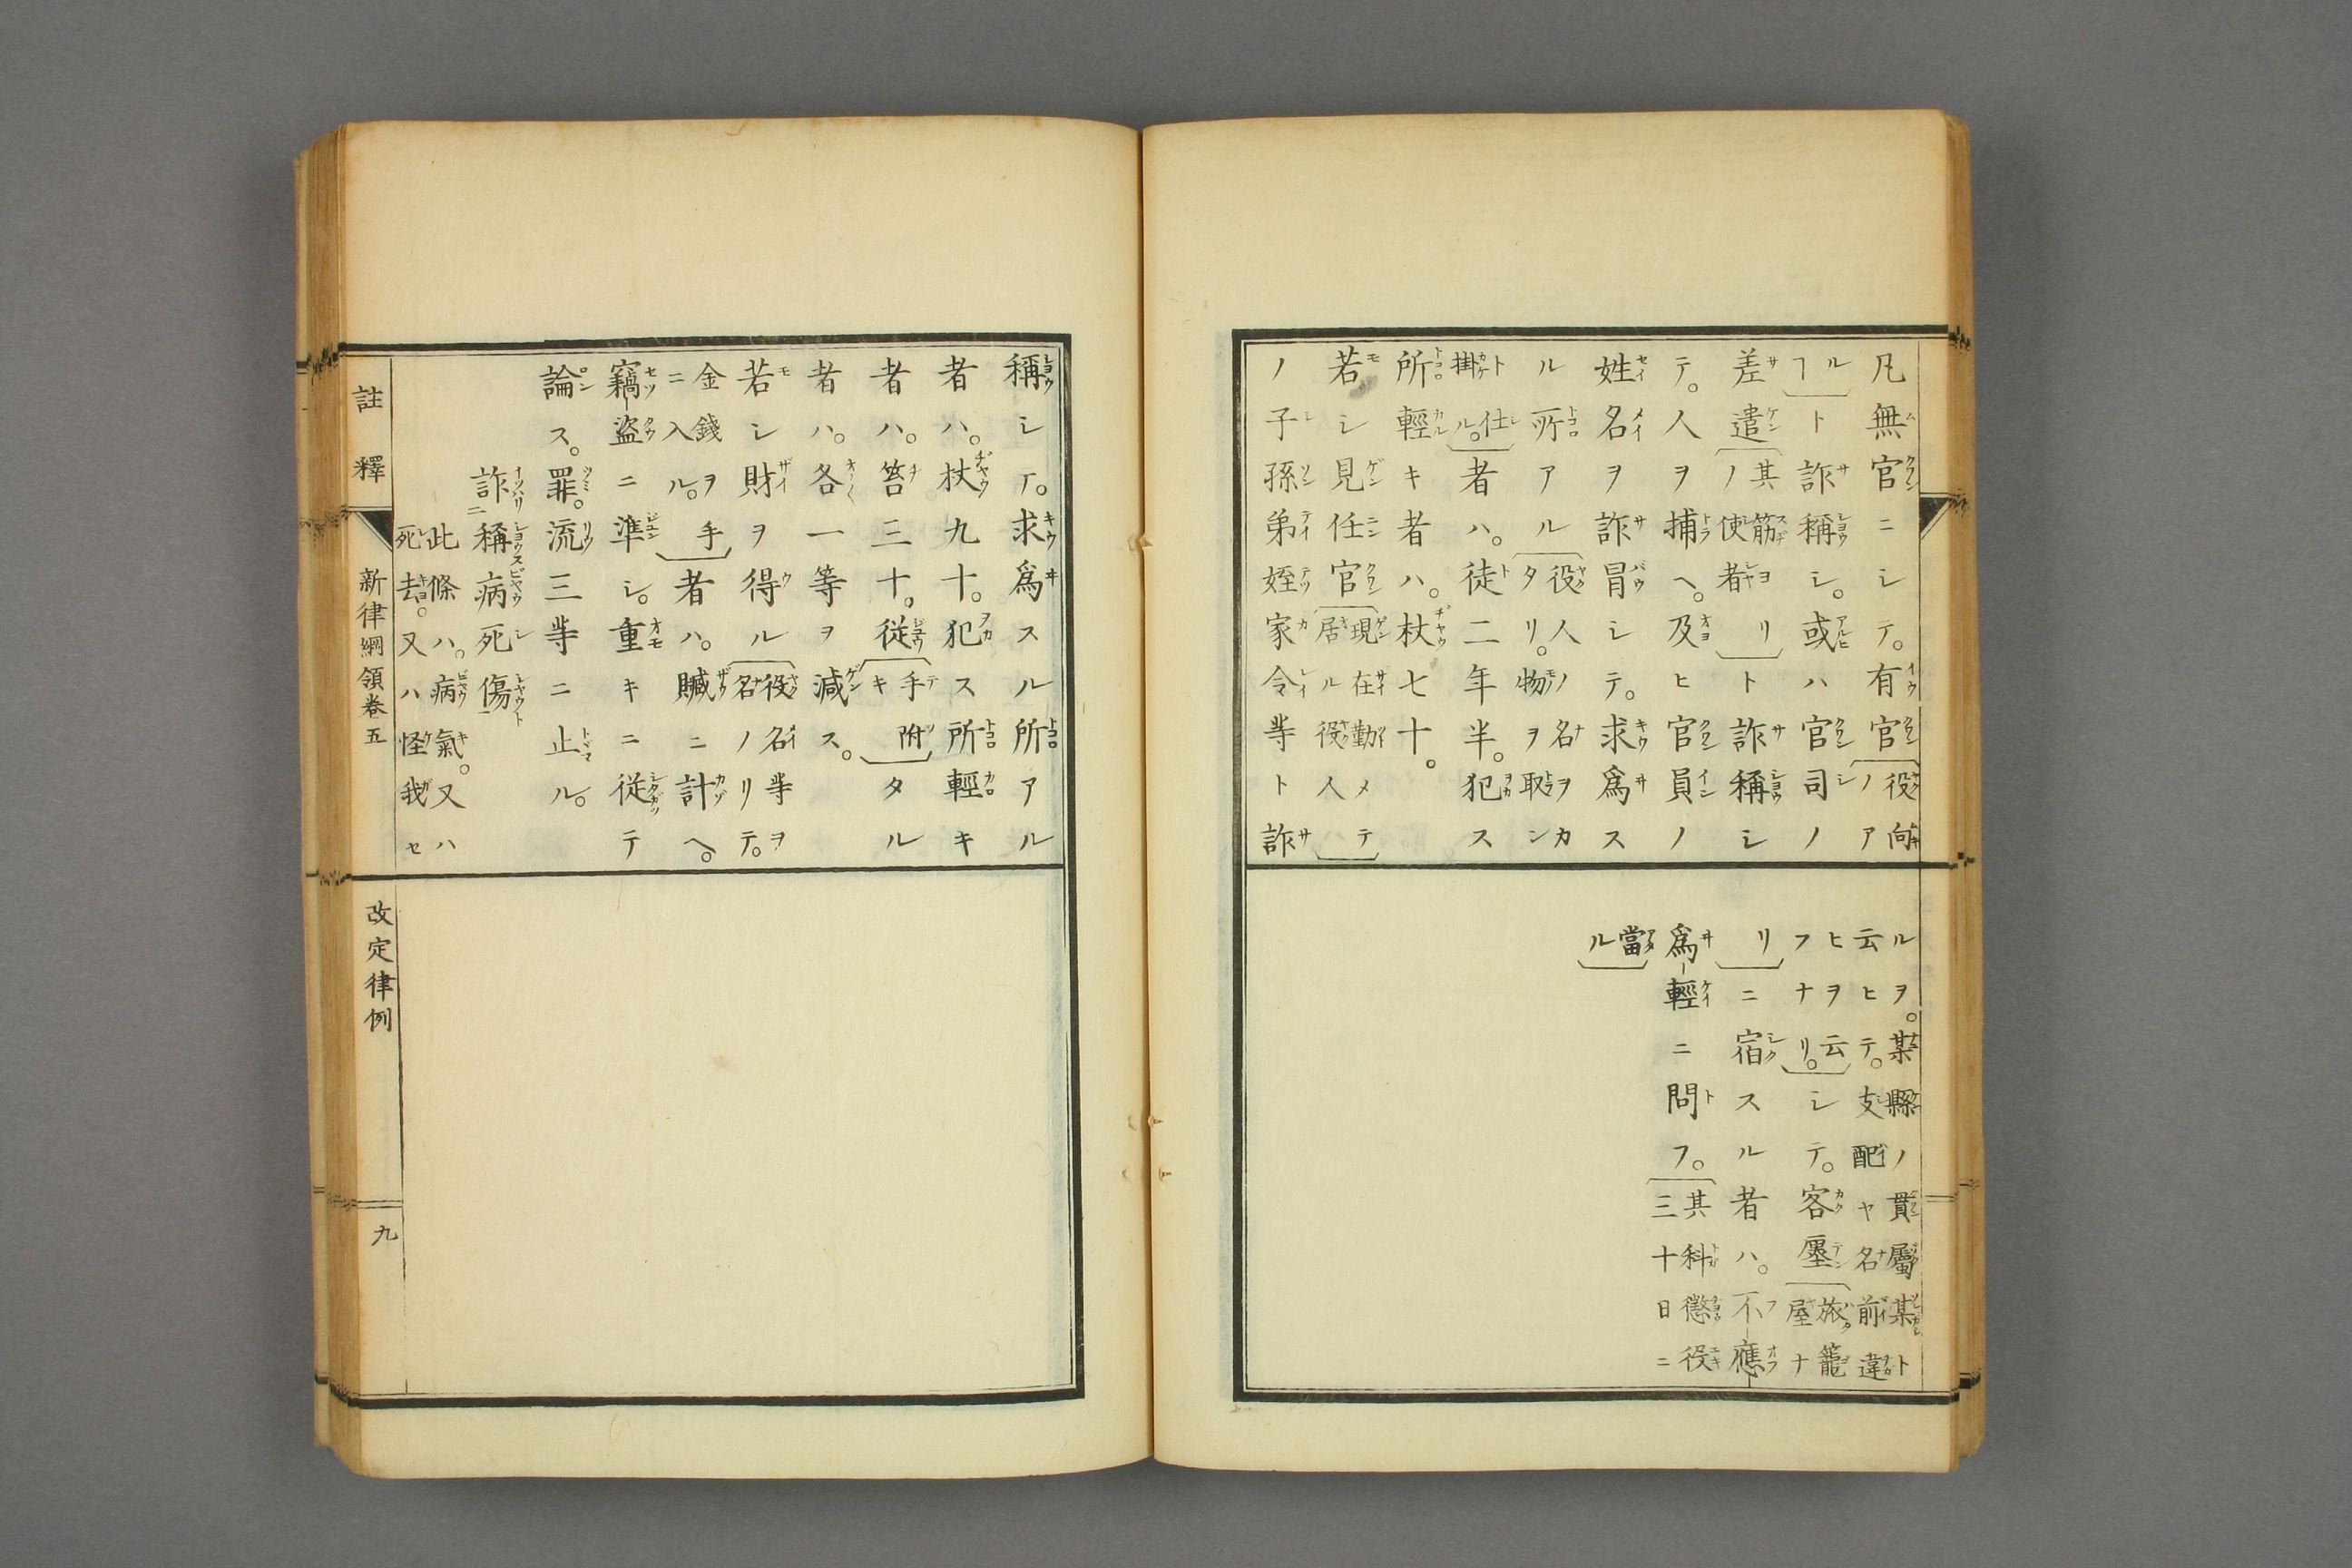 凡無官ニシテ。有官役向ノア
ルヿト詐稱シ。或ハ官司ノ
差遣其筋ヨリノ使者ト詐稱シ
テ。人ヲ捕ヘ。及ヒ官員ノ
姓名ヲ詐冒シテ。求爲ス
ル所アル役人ノ名ヲカタリ。物ヲ取シ
ト仕掛ル。者ハ。徒二年半。犯ス
所輕キ者ハ。杖七十。
若シ見任官現在勤メテ居ル役人
ノ子孫弟姪家令等ト詐
ルヲ。某縣ノ貫屬某ト
云ヒテ。支配ヤ名前違
ヒヲ云フナリ。シテ。客廛旅籠屋ナ
リニ宿スル者ハ。不應
爲輕ニ問フ。其科懲役三十日ニ
當ル
稱シテ。求爲スル所アル
者ハ。杖九十。犯ス所輕キ
者ハ。笞三十。從手附キタル
者ハ。各一等ヲ減ス。
若シ財ヲ得ル役名等ヲ名ノリテ。
金錢ヲ手ニ入ル。者ハ。贓ニ計ヘ。
竊盗ニ準シ。重キニ從テ
論ス。罪。流三等ニ止ル。
詐稱病死傷
此條ハ。病氣。又ハ
死去。又ハ怪我セ
註釋 新律綱領卷五 改定律例 九